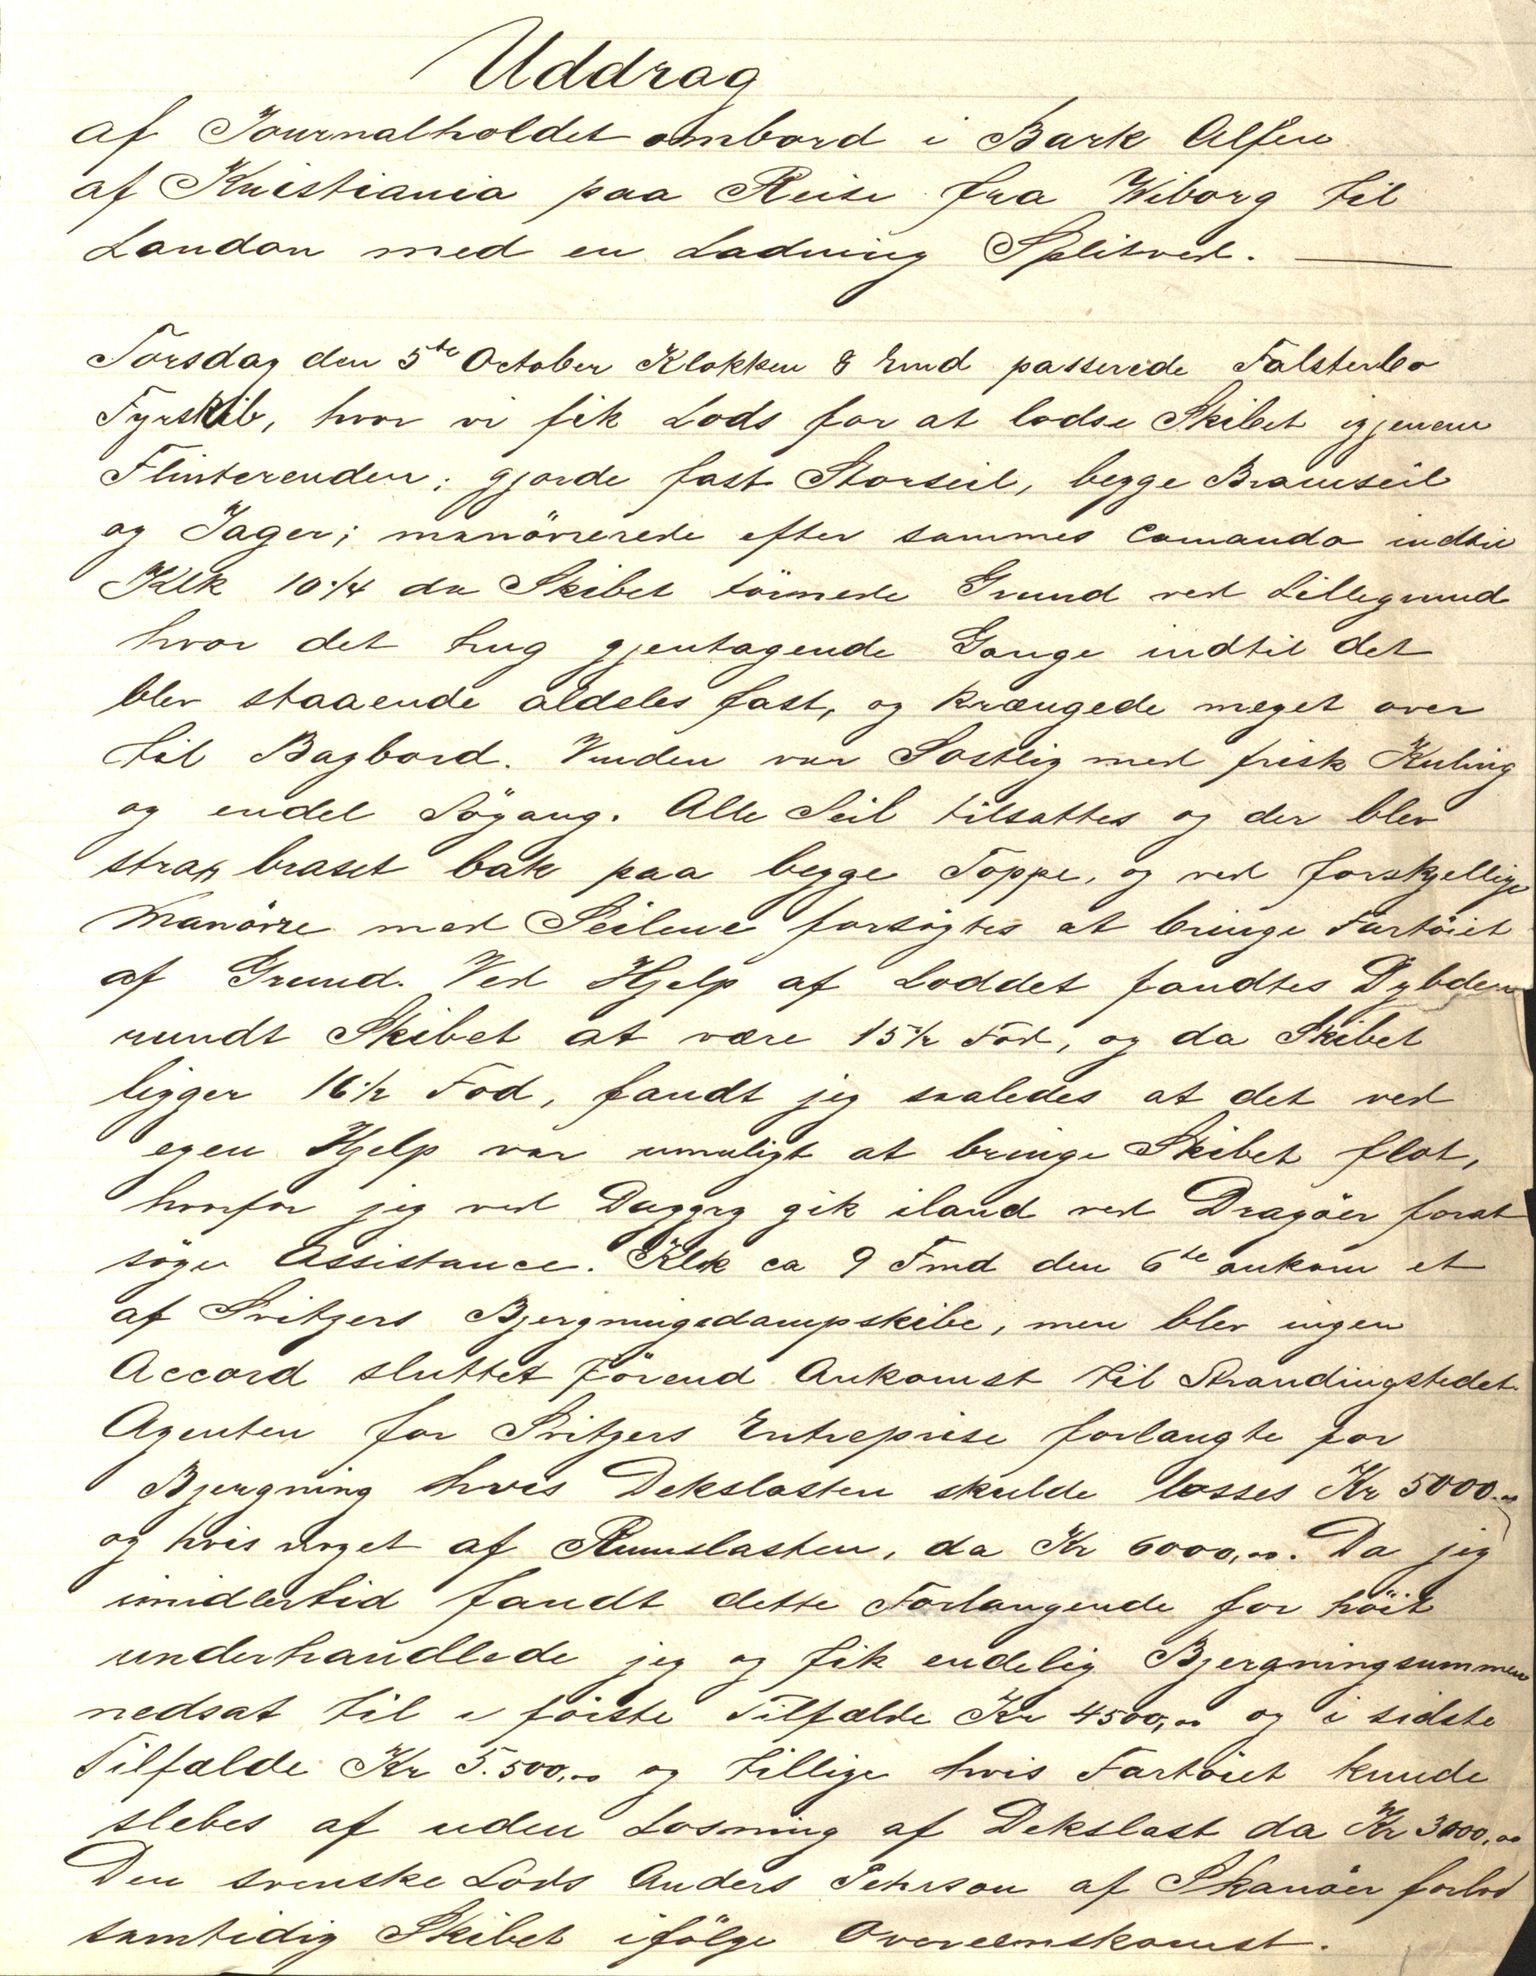 Uddrag
af Journalholdet ombord i Bark Alfen
af Kristiania paa Reise fra Wiborg til
London med en Ladning Splitved.
Torsdag den 5te October Klokken 8 Emd passerede Falsterbo
Fyrskib, hvor vi fik Lods for at lodse Skibet igjenem
Flinterenden; gjorde fast Storseil, begge Bramseil
og Jager; manövrerede efter sammes Comando indtil
Klk 10 1/4 da Skibet törnede Grund ved Lillegrund
hvor det hug gjentagende Gange indtil det
blev staaende aldeles fast, og krængede meget over
til Bagbord. Vinden var Sostlig med frisk Kuling
og endel Sögang. Alle Seil tilsattes og der blev
strax braset bak paa begge Toppe, og ved forskjellige
Manövre med Seilene forsögtes at bringe Fartöiet
af Grund. Ved Hjelp af Loddet fandtes Dybden
rundt Skibet at være 15 1/2 Fod, og da Skibet
ligger 16 1/2 Fod, fandt jeg saaledes at det ved
egen Hjelp var umuligt at bringe Skibet flot,
hvorfor jeg ved Daggry gik iland ved Dragöer forat
söge Assistance. Klk ca 9 Fmd den 6te ankom et
af Svitzers Bjergningsdampskibe, men blev ingen
Accord sluttet förend Ankomst til Strandingstedet.
Agenten for Svitzers Entreprise forlangte for
Bjergning hvis Dekslasten skulde losses Kr 5000.00
og hvis noget af Rumslasten, da Kr 6000,00. Da jeg
imidlertid fandt dette Forlangende for höit
underhandlede jeg og fik endelig Bjergningsummen
nedsat til i förste Tilfælde Kr 4500,00 og i sidste
Tilfælde Kr 5.500,00 og tillige hvis Fartöiet kunde
slebes af uden Losning af Dekslast da Kr 3000,00
Den svenske Lods Anders Pehrson af Skanöer forlod
samtidig Skibet ifölge Overeenskomst.